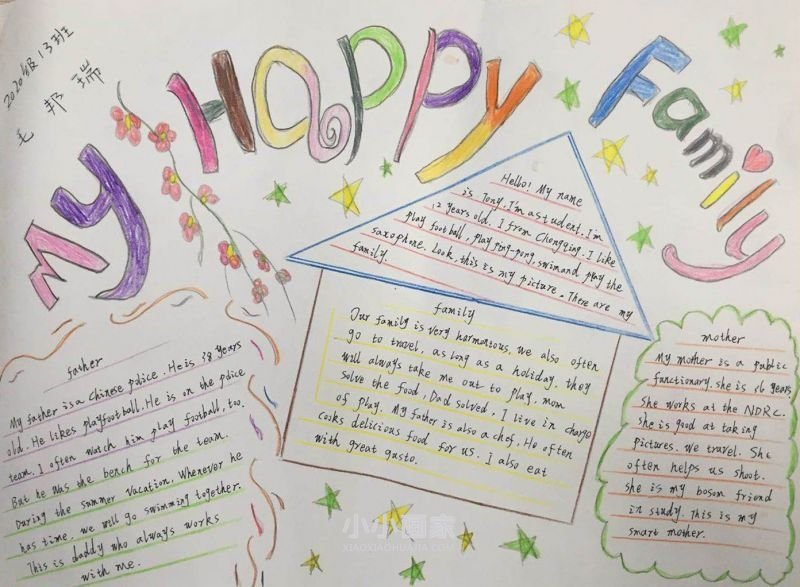 2020级13班
毛邦瑞
My Happy Family
Hello! My name
is Tony. I'm a student. I'm
12 years old. I from Chongqing. I like
play football, play ping-pong, swim and play the
saxophone. Look, this is my picture. There are my
family.
father
My father is a Chinese police. He is 38 years
old. He likes playfootball. He is on the police
team. I often watch him play football, too.
But he was the bench for the team.
During the summer vacation, Whenever he
has time, we will go swimming together.
This is daddy who always works
with me.
family
Our family is very harmonious, we also often
go to travel, as long as a holiday, they
will always take me out to play, mom
solve the food, Dad solved, I live in charge
of play. My father is also a chef. He often
cooks delicious food for us. I also eat
with great gusto.
mother
My mother is a public
functionary. she is 36 years
She works at the NDRC.
she is good at taking
pictures. we travel. She
often helps us shoot.
she is my bosom friend
in study. This is my
smart mother.
小小画家
XIAOXIAOHUAJIA.COM